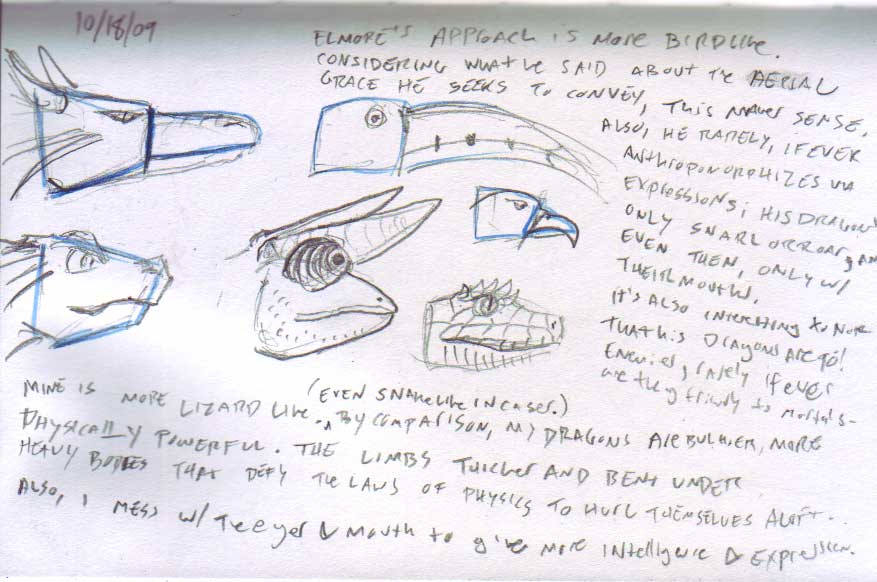 10/18/09
ELMORE'S APPROACH IS MORE BIRDLIKE.
CONSIDERING WHAT HE SAID ABOUT THE AERIAL
GRACE HE SEEKS TO CONVEY, THIS MAKES SENSE.
ALSO, HE RARELY, IF EVER
ANTHROPOMORPHIZES VIA
EXPRESSIONS; HIS DRAGONS
ONLY SNARL OR ROAR, AND
EVEN THEN, ONLY W/
THEIR MOUTHS.
IT'S ALSO INTERESTING TO NOTE
THAT HIS DRAGONS ARE
ENEMIES, RARELY IF EVER
ARE THEY FRIENDLY TO MORTALS-
MINE IS MORE LIZARD LIKE. (EVEN SNAKELIKE IN CASES.) BY COMPARISON, MY DRAGONS ARE BULKIER, MORE
PHYSICALLY POWERFUL. THE LIMBS THICKER AND BENT UNDER
HEAVY BODIES THAT DEFY THE LAWS OF PHYSICS TO HURL THEMSELVES ALOFT.
ALSO, I MESS W/ THE EYES & MOUTH TO GIVE MORE INTELLIGENCE & EXPRESSION.